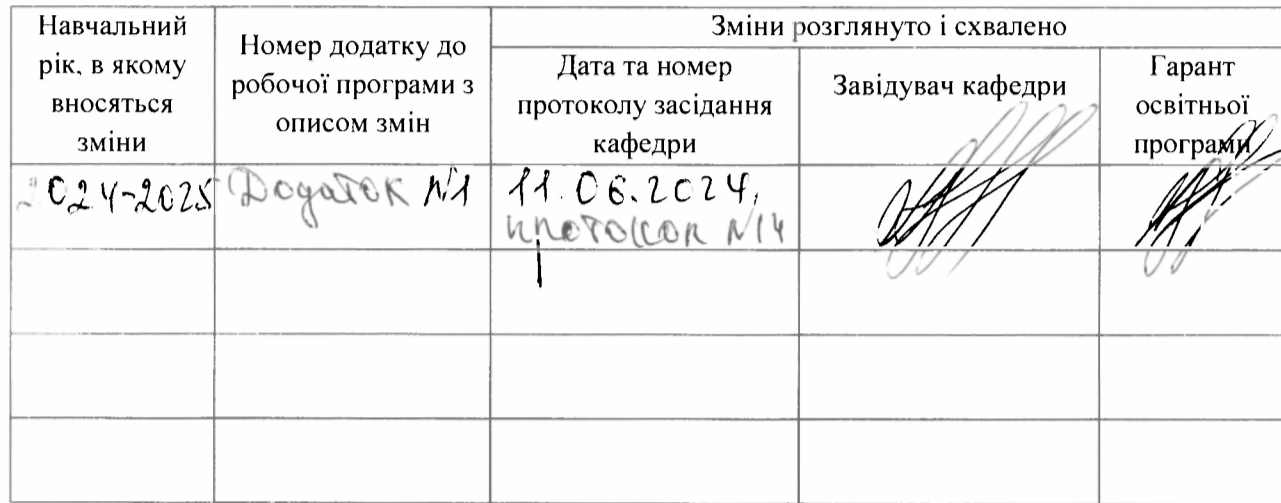 Навчальний
рік, в якому
вносяться
зміни
Номер додатку до
робочої програми з
описом змін
Зміни розглянуто і схвалено
Дата та номер
протоколу засідання
кафедри
Завідувач кафедри
Гарант
освітньої
програми
2024-2025
Додаток №1
11.06.2024,
протокол №14